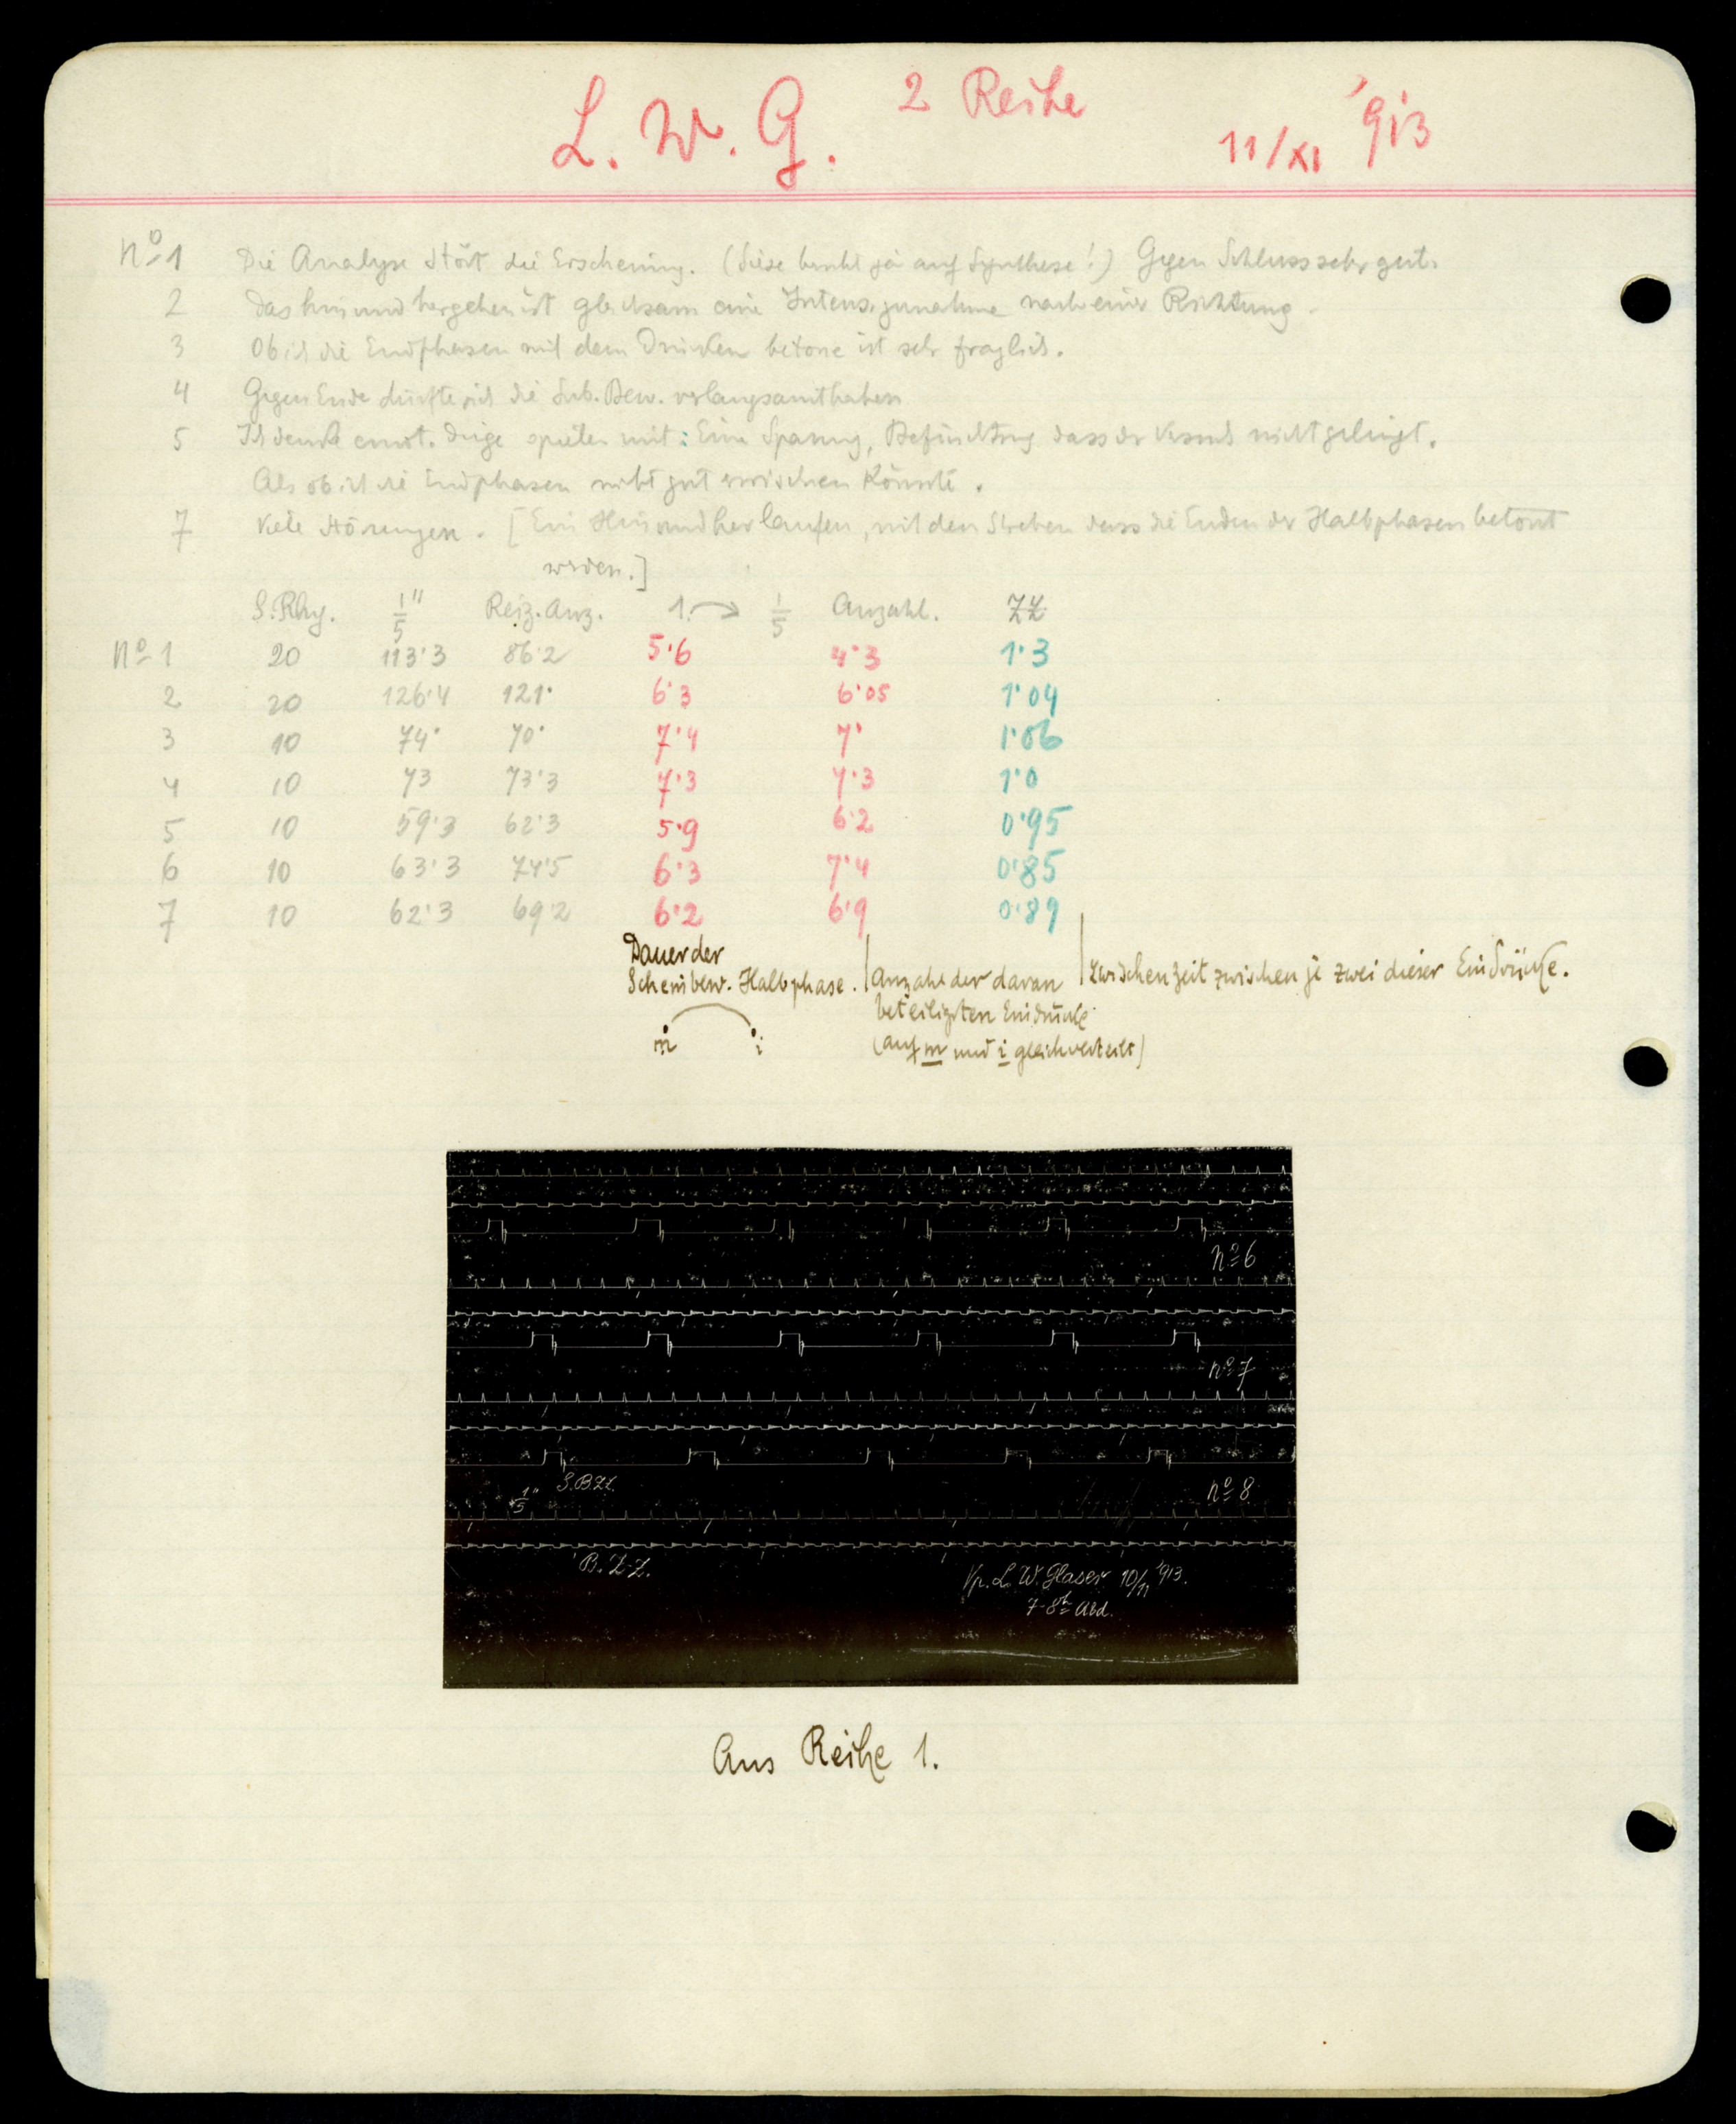 L. W. G. 2 Reihe 11/XI '913
No 1 Die Analyse stört die Erscheinung. (Diese beruht ja auf Synthese!) Gegen Schluss sehr gut.
2 Das hin und hergehen ist gleichsam eine Intens. zunahme nach einer Richtung.
3 Ob ich die Endphasen mit dem Drücken betone ist sehr fraglich.
4 Gegen Ende dürfte sich die Sub. Bew. verlangsamt haben
5 Ich denke emot. Dinge spielen mit: Eine Spanung, Befürchtung dass der Versuch nicht gelingt.
Als ob ich die Endphasen nicht gut erwischen könnte.
7 Viele Störungen. [Ein Hin und her laufen, mit den Streben dass die Enden der Halbphasen betont
werden.]
S. Rhy. 1/5" Reiz. Anz. 1. → 1/5 Anzahl. ZZ
No 1 20 113·3 86·2 5·6 4·3 1·3
2 20 126·4 121· 6·3 6·05 1·04
3 10 74· 70· 7·4 7· 1·06
4 10 73 73·3 7·3 7·3 1·0
5 10 59·3 62·3 5·9 6·2 0·95
6 10 63·3 74·5 6·3 7·4 0·85
7 10 62·3 69·2 6·2 6·9 0·89
Dauer der
Scheinbew. Halbphase. | Anzahl der daran | Zwischenzeit zwischen je zwei dieser Eindrücke.
beteiligten Eindrücke
m i (auf m und i gleichverteilt)
No 6
No 7
S.B.ZZ.
1/5" No 8
B.Z-Z. Vp. L. W. Glaser 10/11 '913.
7-8h Abd.
Aus Reihe 1.